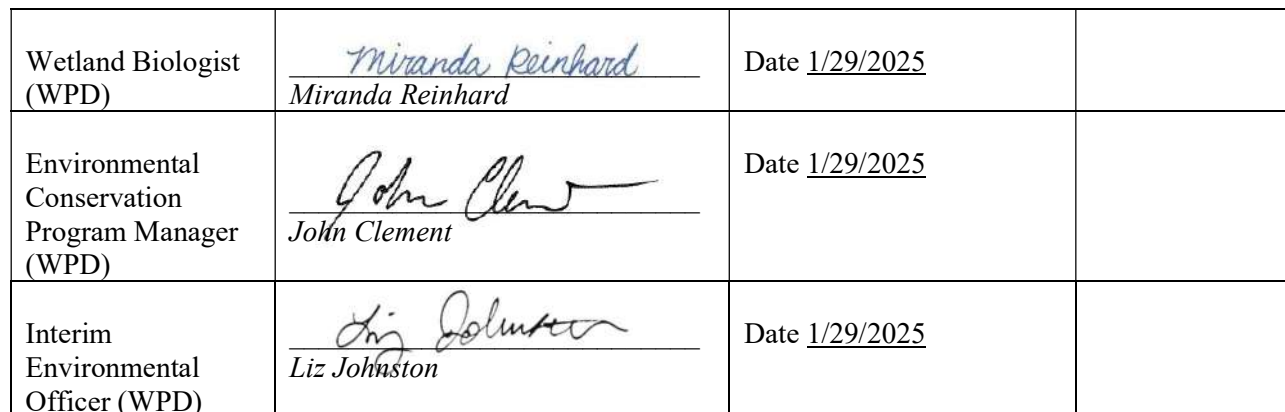 Wetland Biologist
(WPD)
Miranda Reinhard
Miranda Reinhard
Date 1/29/2025
Environmental
Conservation
Program Manager
(WPD)
John Clement
John Clement
Date 1/29/2025
Interim
Environmental
Officer (WPD)
Liz Johnston
Liz Johnston
Date 1/29/2025